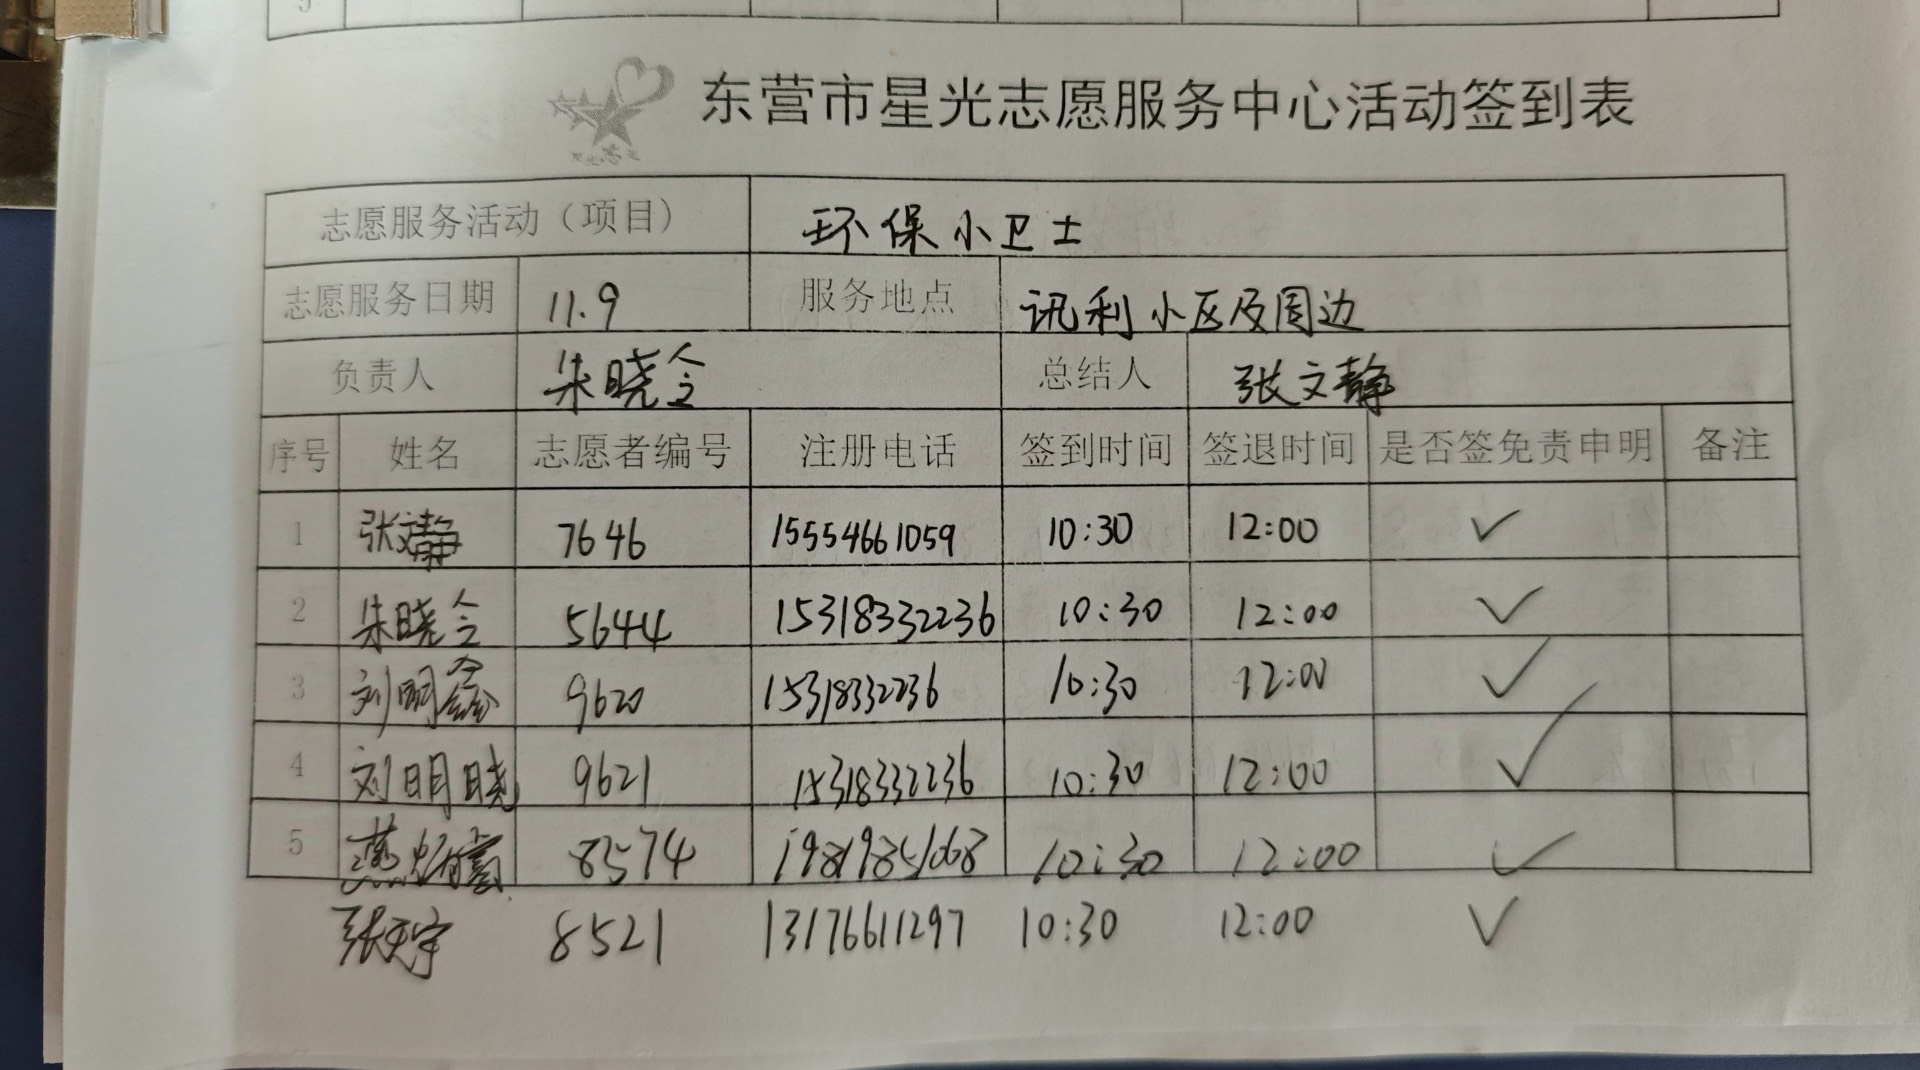 5
东营市星光志愿服务中心活动签到表
志愿服务活动（项目） 环保小卫士
志愿服务日期 11.9 服务地点 讯利小区及周边
负责人 朱晓令 总结人 张文静
序号 姓名 志愿者编号 注册电话 签到时间 签退时间 是否签免责申明 备注
1 张文静 7646 15554661059 10:30 12:00 ✓
2 朱晓令 5644 15318332236 10:30 12:00 ✓
3 刘明鑫 9620 15318332236 10:30 12:00 ✓
4 刘明晓 9621 15318332236 10:30 12:00 ✓
5 8574 19819851068 10:30 12:00 ✓
张天宇 8521 13176611297 10:30 12:00 ✓